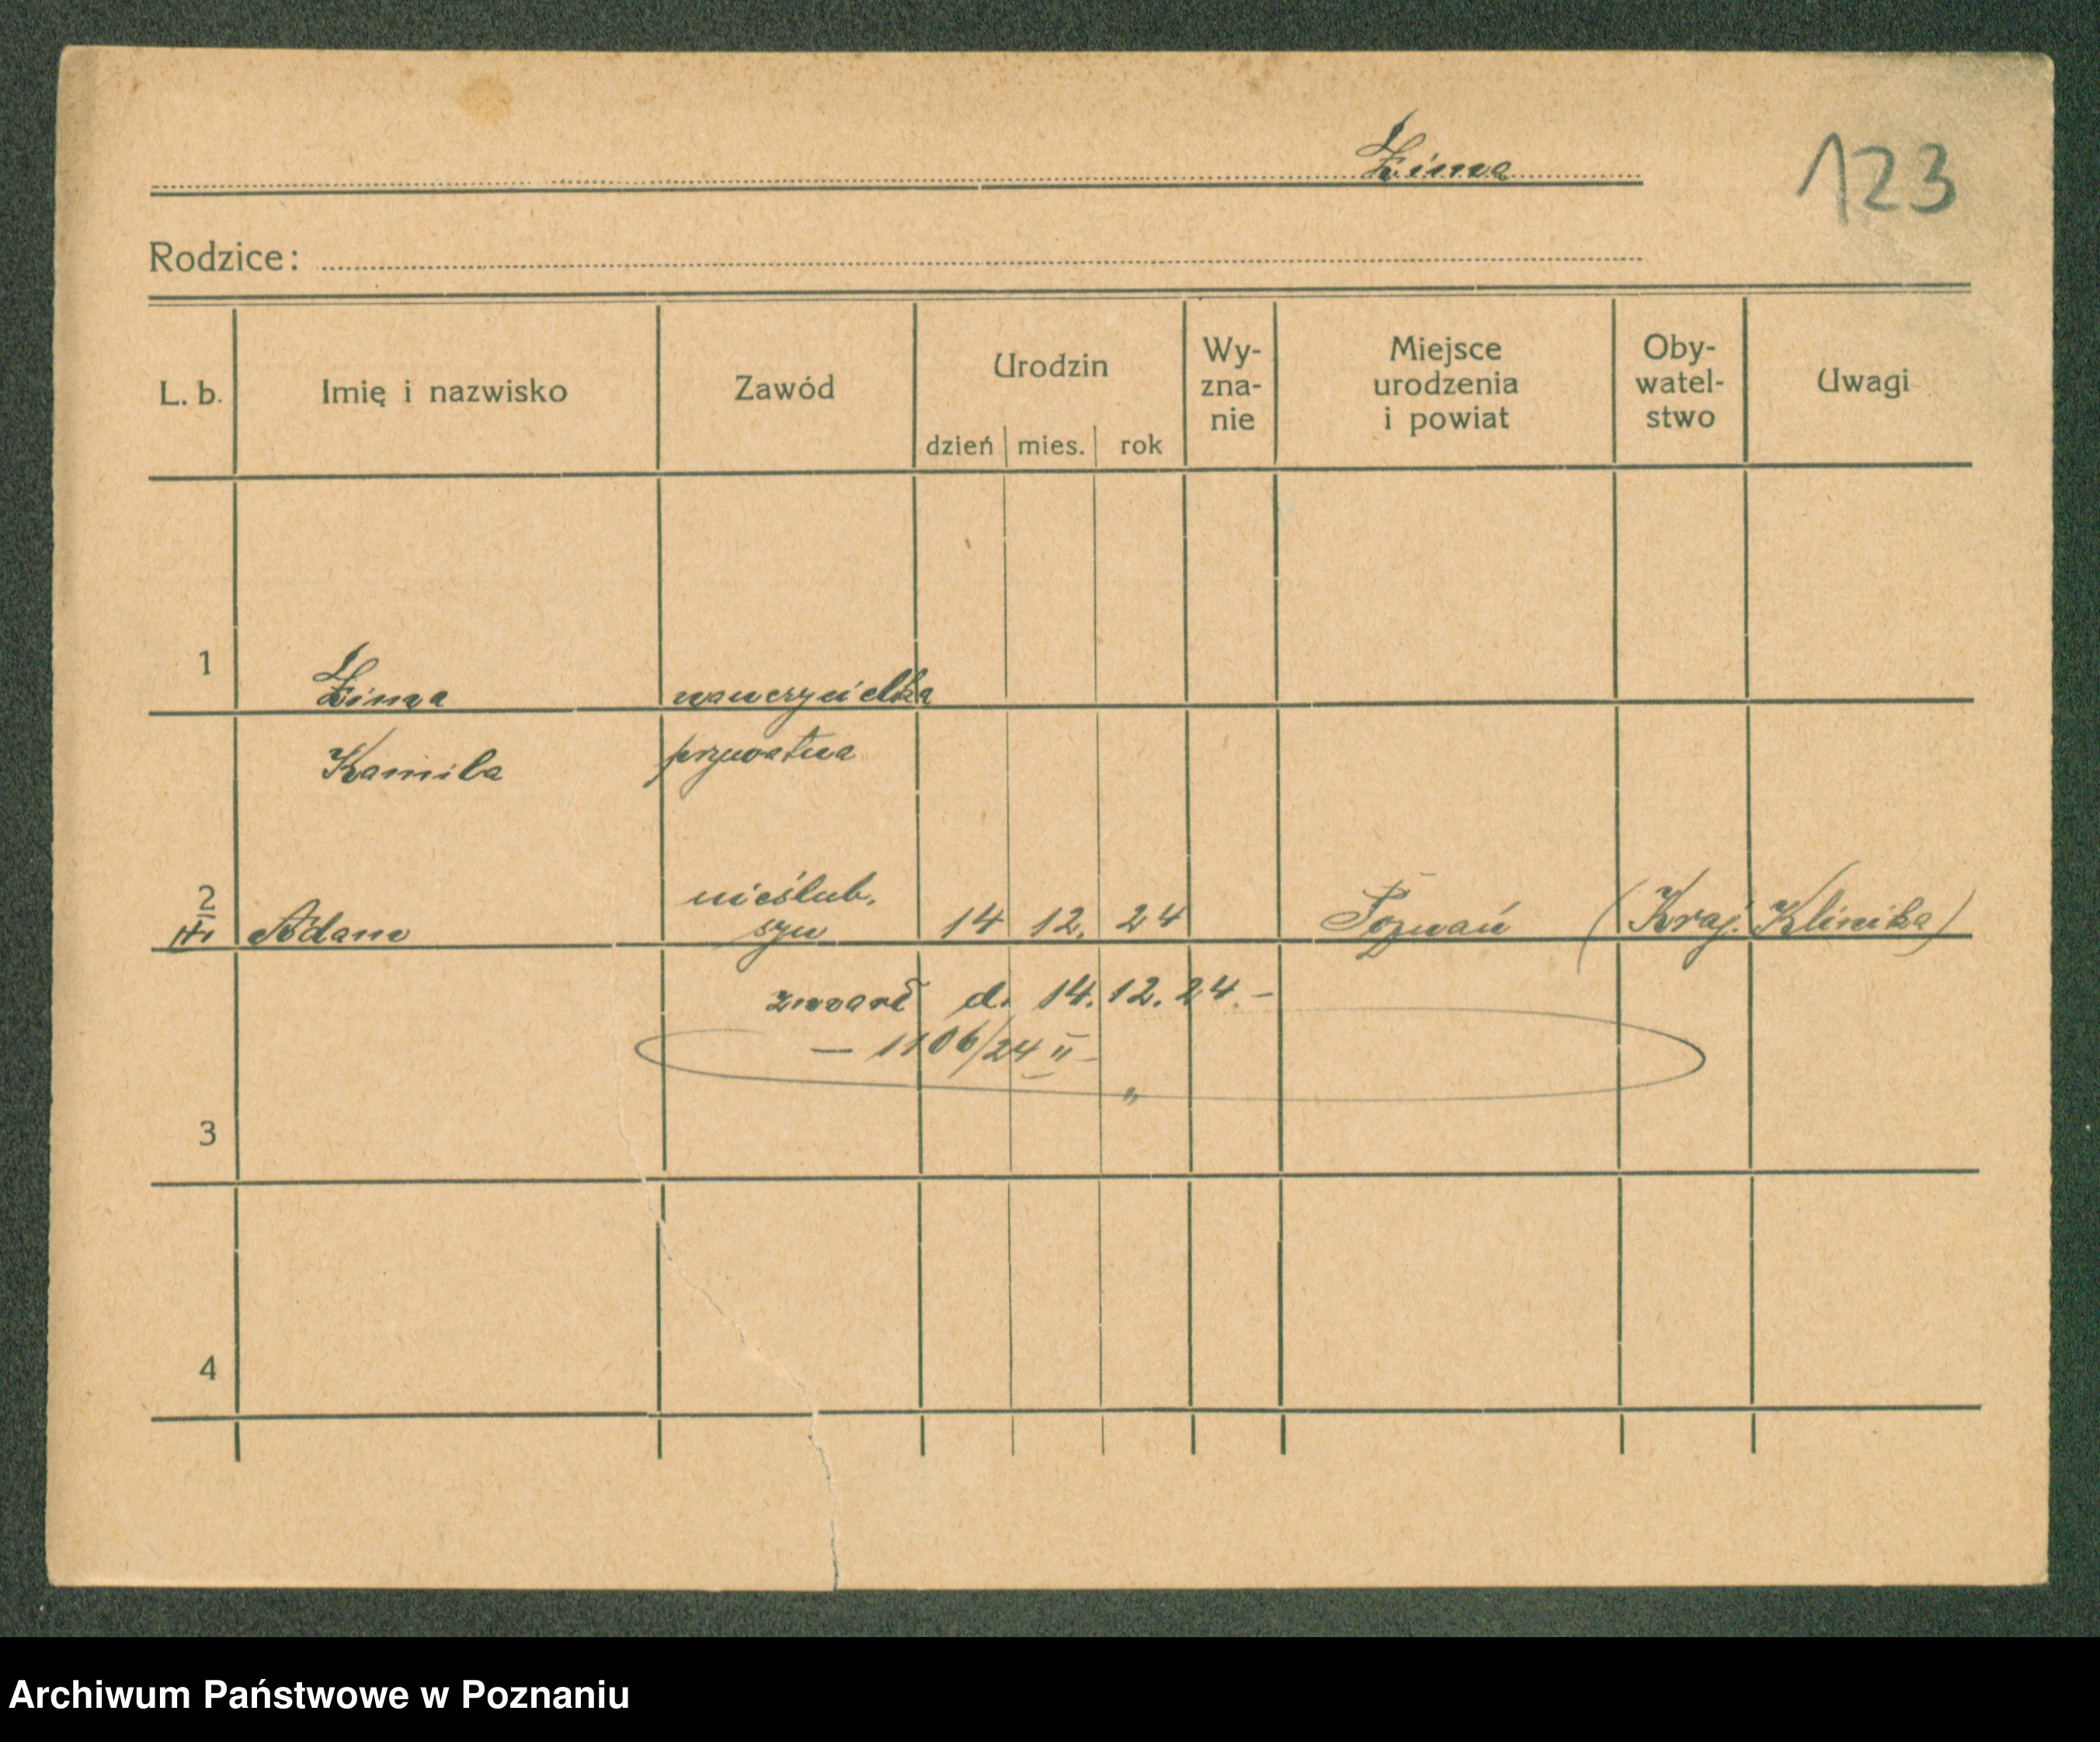 Zima
123
Rodzice:
L. b. Imię i nazwisko Zawód Urodzin dzień mies. rok Wy-zna-nie Miejsce urodzenia i powiat Oby-watel-stwo Uwagi
1 Zima nauczycielka
Kamila prywatna
2 Adam nieślub. syn 14 12. 24 Poznań (Kraj. Klinika)
zmarł d. 14.12.24.-
- 1106/24 II -
3
4
Archiwum Państwowe w Poznaniu